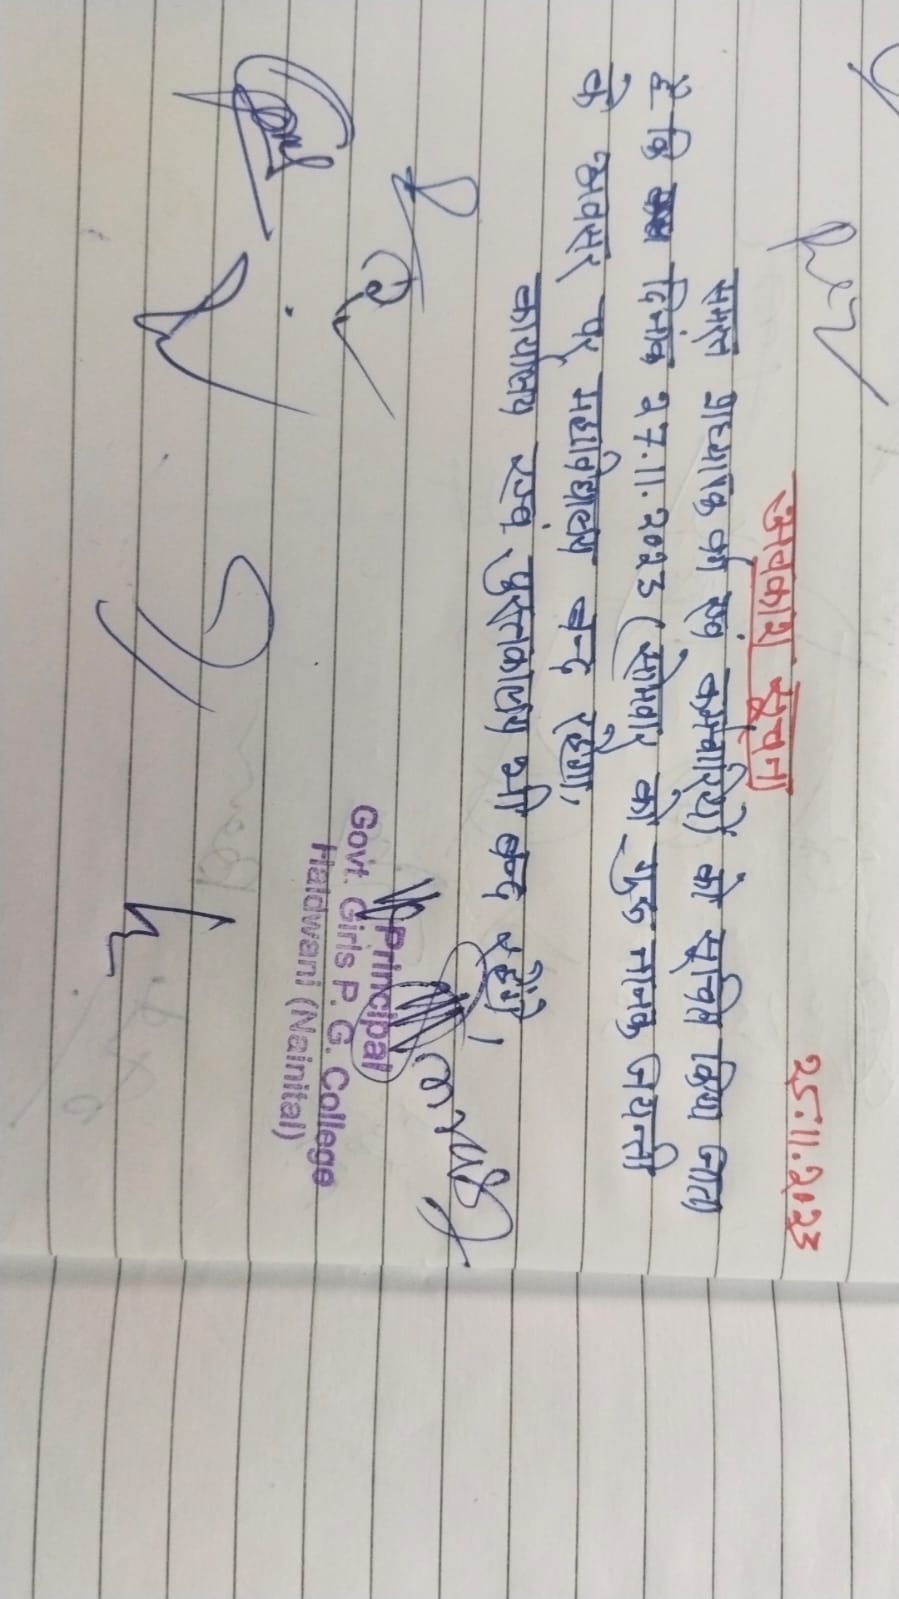 25.11.2023
अवकाश सूचना
समस्त प्राध्यापक वर्ग एवं कर्मचारियों को सूचित किया जाता
है कि दिनांक 27.11.2023 (सोमवार को गुरु नानक जयन्ती
के अवसर पर महाविद्यालय बन्द रहेगा,
कार्यालय एवं पुस्तकालय भी बन्द रहेंगे।
Principal
Govt. Girls P. G. College
Haldwani (Nainital)